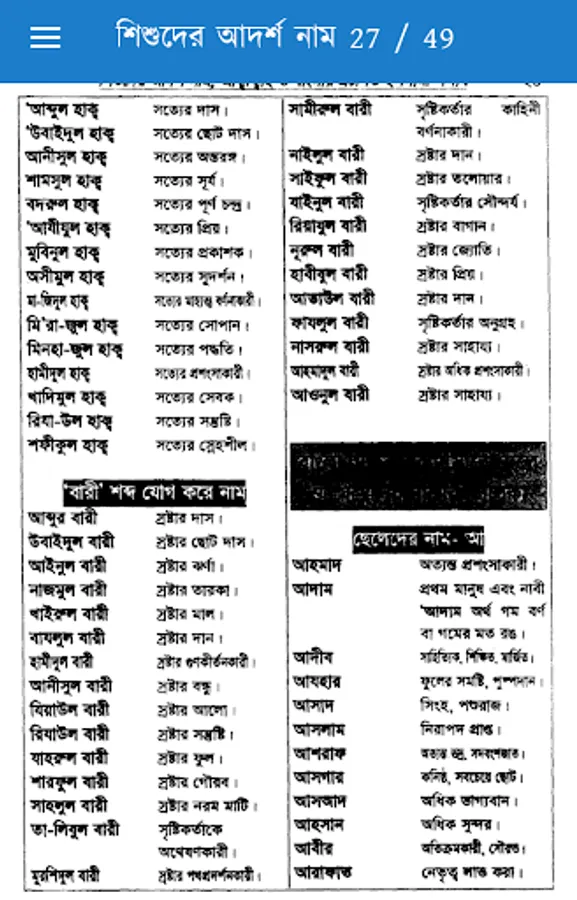 শিশুদের আদর্শ নাম 27 / 49
'আব্দুল হাক্ব সত্যের দাস।
'উবাইদুল হাক্ব সত্যের ছোট দাস।
আনীসুল হাক্ব সত্যের অন্তরঙ্গ।
শামসুল হাক্ব সত্যের সূর্য।
বদরুল হাক্ব সত্যের পূর্ণ চন্দ্র।
'আযীযুল হাক্ব সত্যের প্রিয়।
মুবিনুল হাক্ব সত্যের প্রকাশক।
অসীমুল হাক্ব সত্যের সুদর্শন।
মা-জিদুল হাক্ব সত্যের মাহাত্ম্য বর্ণনাকারী।
মি'রা-জুল হাক্ব সত্যের সোপান।
মিনহা-জুল হাক্ব সত্যের পদ্ধতি।
হামীদুল হাক্ব সত্যের প্রশংসাকারী।
খাদিমুল হাক্ব সত্যের সেবক।
রিযা-উল হাক্ব সত্যের সন্তুষ্টি।
শফীকুল হাক্ব সত্যের স্নেহশীল।
'বারী' শব্দ যোগ করে নাম
আব্দুর বারী স্রষ্টার দাস।
উবাইদুল বারী স্রষ্টার ছোট দাস।
আইনুল বারী স্রষ্টার ঝর্ণা।
নাজমুল বারী স্রষ্টার তারকা।
খাইরুল বারী স্রষ্টার মাল।
বাযলুল বারী স্রষ্টার দান।
হামীদুল বারী স্রষ্টার গুণকীর্তনকারী।
আনীসুল বারী স্রষ্টার বন্ধু।
যিয়াউল বারী স্রষ্টার আলো।
রিযাউল বারী স্রষ্টার সন্তুষ্টি।
যাহরুল বারী স্রষ্টার ফুল।
শারফুল বারী স্রষ্টার গৌরব।
সাহলুল বারী স্রষ্টার নরম মাটি।
তা-লিবুল বারী সৃষ্টিকর্তাকে
অন্বেষণকারী।
মুরশিদুল বারী স্রষ্টার পথপ্রদর্শনকারী।
সামীরুল বারী সৃষ্টিকর্তার কাহিনী
বর্ণনাকারী।
নাইলুল বারী স্রষ্টার দান।
সাইফুল বারী স্রষ্টার তলোয়ার।
যাইনুল বারী সৃষ্টিকর্তার সৌন্দর্য।
রিয়াযুল বারী স্রষ্টার বাগান।
নূরুল বারী স্রষ্টার জ্যোতি।
হাবীবুল বারী স্রষ্টার প্রিয়।
আতাউল বারী স্রষ্টার দান।
ফাযলুল বারী সৃষ্টিকর্তার অনুগ্রহ।
নাসরুল বারী স্রষ্টার সাহায্য।
আহমাদুল বারী স্রষ্টার অধিক প্রশংসাকারী।
আওনুল বারী স্রষ্টার সাহায্য।
ছেলেদের নাম- আ
আহমাদ অত্যন্ত প্রশংসাকারী।
আদাম প্রথম মানুষ এবং নাবী
'আদাম অর্থ গম বর্ণ
বা গমের মত রঙ।
আদীব সাহিত্যিক, শিক্ষিত, মার্জিত।
আযহার ফুলের সমষ্টি, পুষ্পদান।
আসাদ সিংহ, পশুরাজ।
আসলাম নিরাপদ প্রাপ্ত।
আশরাফ অত্যন্ত ভদ্র, সদবংশজাত।
আসগার কনিষ্ঠ, সবচেয়ে ছোট।
আসআদ অধিক ভাগ্যবান।
আহসান অধিক সুন্দর।
আবীর অতিক্রমকারী, সৌরভ।
আরাফাত নেতৃত্ব লাভ করা।